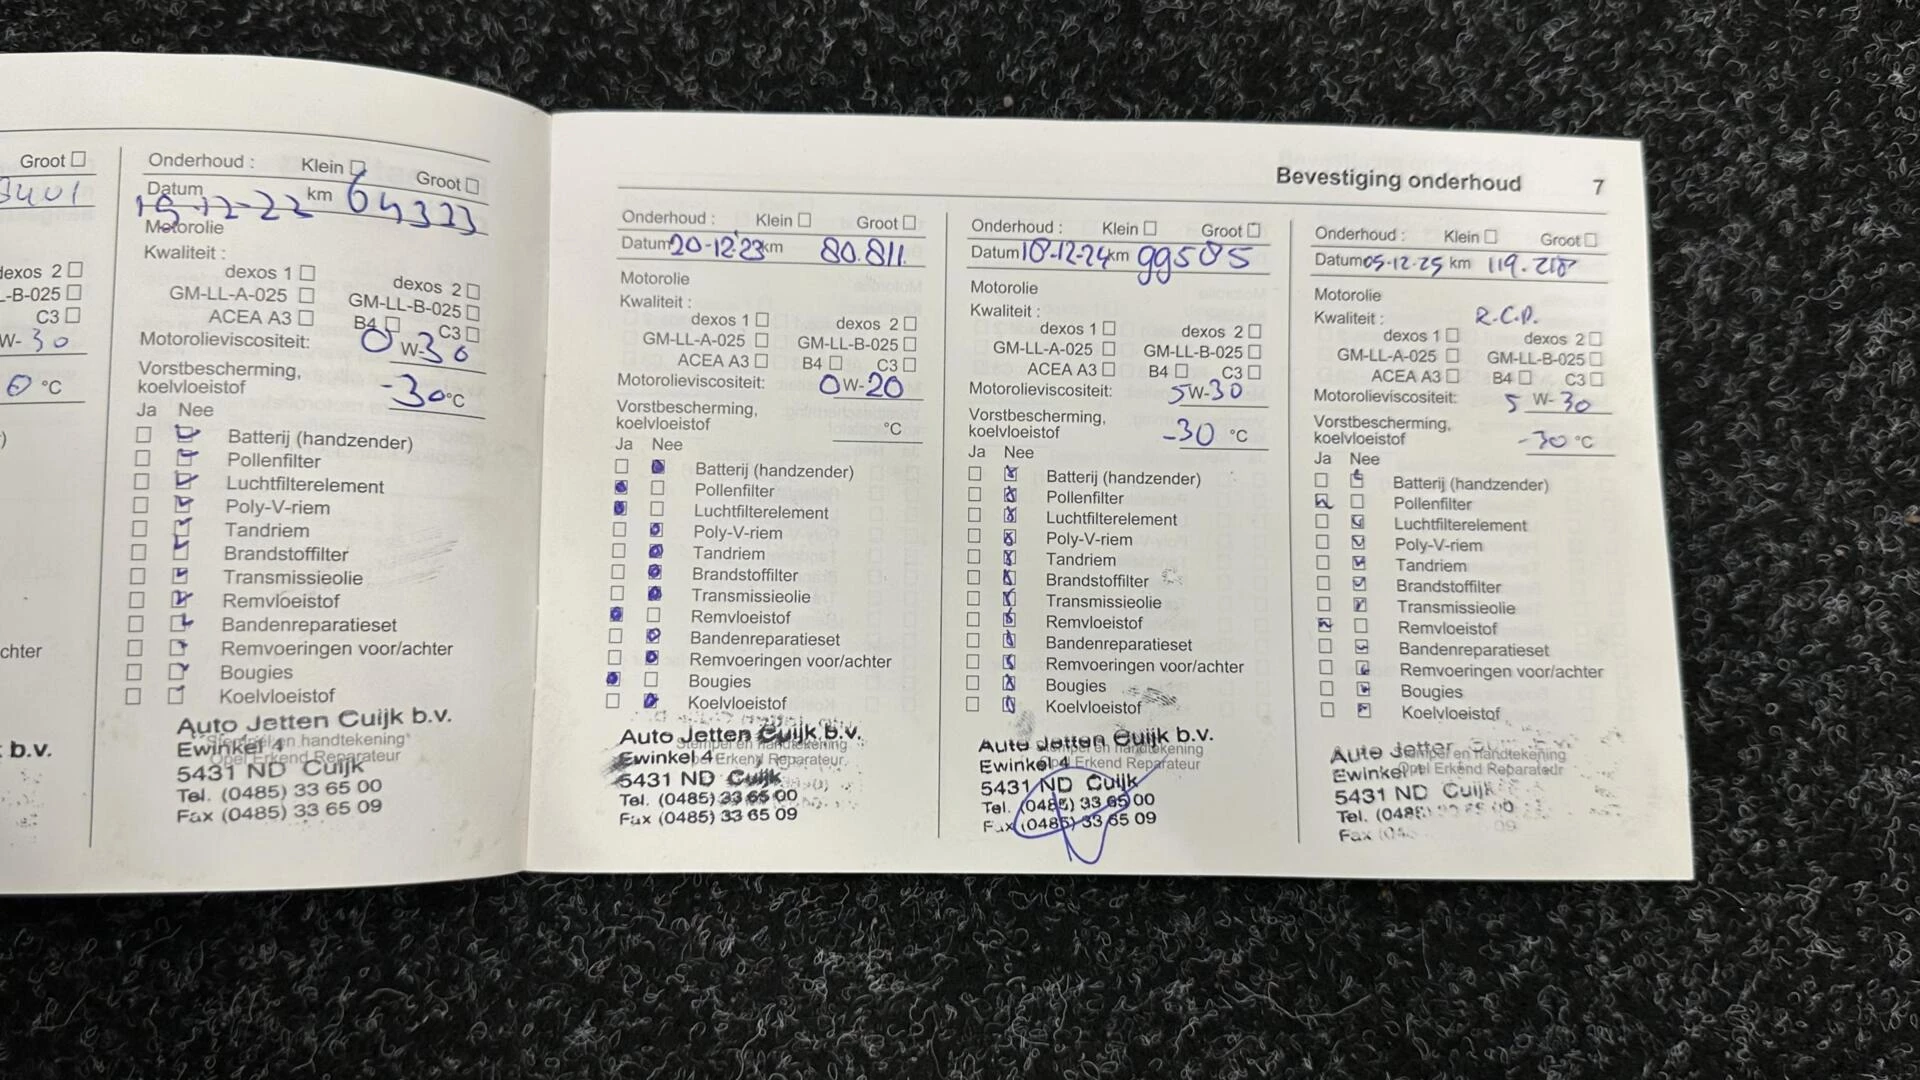 Groot
dexos 2
L-B-025
C3
W-30
0 °C
chter
b.v.
Onderhoud : Klein Groot
Datum 19-12-22 km 64323
Motorolie
Kwaliteit :
dexos 1 dexos 2
GM-LL-A-025 GM-LL-B-025
ACEA A3 B4 C3
Motorolieviscositeit: 0 W-30
Vorstbescherming,
koelvloeistof -30 °C
Ja Nee
Batterij (handzender)
Pollenfilter
Luchtfilterelement
Poly-V-riem
Tandriem
Brandstoffilter
Transmissieolie
Remvloeistof
Bandenreparatieset
Remvoeringen voor/achter
Bougies
Koelvloeistof
Auto Jetten Cuijk b.v.
Stempel en handtekening
Ewinkel 4
Opel Erkend Reparateur
5431 ND Cuijk
Tel. (0485) 33 65 00
Fax (0485) 33 65 09
Bevestiging onderhoud 7
Onderhoud : Klein Groot
Datum 20-12-23 km 80.811
Motorolie
Kwaliteit :
dexos 1 dexos 2
GM-LL-A-025 GM-LL-B-025
ACEA A3 B4 C3
Motorolieviscositeit: 0 W-20
Vorstbescherming,
koelvloeistof °C
Ja Nee
Batterij (handzender)
Pollenfilter
Luchtfilterelement
Poly-V-riem
Tandriem
Brandstoffilter
Transmissieolie
Remvloeistof
Bandenreparatieset
Remvoeringen voor/achter
Bougies
Koelvloeistof
Auto Jetten Cuijk b.v.
Stempel en handtekening
Ewinkel 4
Opel Erkend Reparateur
5431 ND Cuijk
Tel. (0485) 33 65 00
Fax (0485) 33 65 09
Onderhoud : Klein Groot
Datum 18-12-24 km 99585
Motorolie
Kwaliteit :
dexos 1 dexos 2
GM-LL-A-025 GM-LL-B-025
ACEA A3 B4 C3
Motorolieviscositeit: 5 W-30
Vorstbescherming,
koelvloeistof -30 °C
Ja Nee
Batterij (handzender)
Pollenfilter
Luchtfilterelement
Poly-V-riem
Tandriem
Brandstoffilter
Transmissieolie
Remvloeistof
Bandenreparatieset
Remvoeringen voor/achter
Bougies
Koelvloeistof
Auto Jetten Cuijk b.v.
Stempel en handtekening
Ewinkel 4
Opel Erkend Reparateur
5431 ND Cuijk
Tel. (0485) 33 65 00
Fax (0485) 33 65 09
Onderhoud : Klein Groot
Datum 05-12-25 km
Motorolie
Kwaliteit : R.C.P.
dexos 1 dexos 2
GM-LL-A-025 GM-LL-B-025
ACEA A3 B4 C3
Motorolieviscositeit: 5 W-30
Vorstbescherming,
koelvloeistof -30 °C
Ja Nee
Batterij (handzender)
Pollenfilter
Luchtfilterelement
Poly-V-riem
Tandriem
Brandstoffilter
Transmissieolie
Remvloeistof
Bandenreparatieset
Remvoeringen voor/achter
Bougies
Koelvloeistof
Auto Jetten
Stempel en handtekening
Ewinkel
Opel Erkend Reparateur
5431 ND Cuijk
Tel. (0485)
Fax